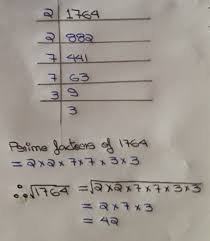 2 | 1764
2 | 882
7 | 441
7 | 63
3 | 9
3
Prime factors of 1764
= 2×2×7×7×3×3
∴ √1764 = √2×2×7×7×3×3
= 2×7×3
= 42